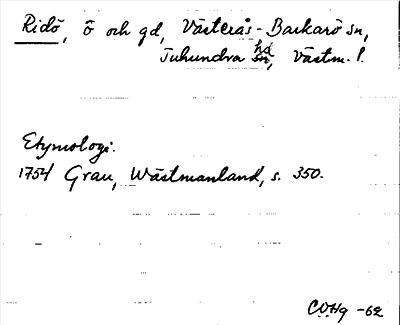 Ridö, ö och gd, Västerås-Barkarö sn,
Tuhundra hd, Västm. l.
Etymologi.
1754 Grau, Wästmanland, s. 350.
COHg -62